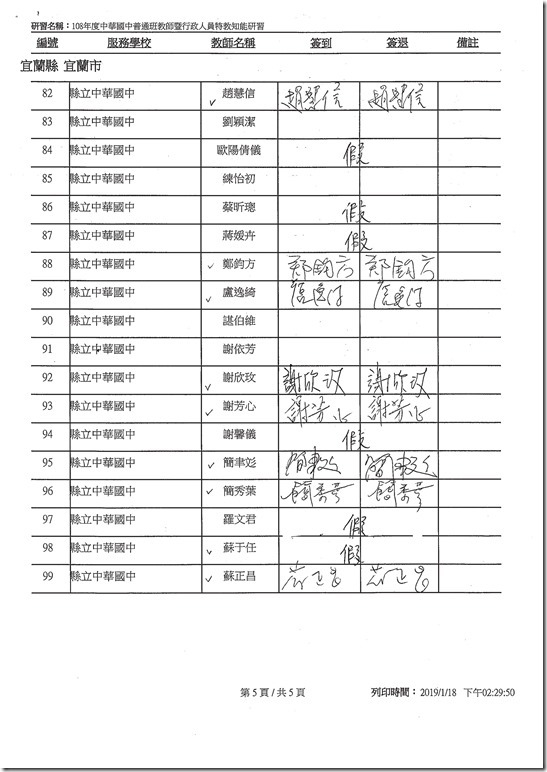 研習名稱：108年度中華國中普通班教師暨行政人員特教知能研習
編號 服務學校 教師名稱 簽到 簽退 備註
宜蘭縣 宜蘭市
82 縣立中華國中 ✓ 趙慧信 趙慧信 趙慧信
83 縣立中華國中 劉穎潔
84 縣立中華國中 歐陽倩儀 假
85 縣立中華國中 練怡初
86 縣立中華國中 蔡昕璁 假
87 縣立中華國中 蔣媛卉 假
88 縣立中華國中 ✓ 鄭鈞方 鄭鈞方 鄭鈞方
89 縣立中華國中 ✓ 盧逸綺
90 縣立中華國中 諶伯維
91 縣立中華國中 謝依芳
92 縣立中華國中 ✓ 謝欣玫 謝欣玫 謝欣玫
93 縣立中華國中 ✓ 謝芳心 謝芳心 謝芳心
94 縣立中華國中 謝馨儀 假
95 縣立中華國中 ✓ 簡聿彣 簡聿彣 簡聿彣
96 縣立中華國中 ✓ 簡秀葉 簡秀葉 簡秀葉
97 縣立中華國中 羅文君 假
98 縣立中華國中 ✓ 蘇于任 假
99 縣立中華國中 ✓ 蘇正昌 蘇正昌 蘇正昌
第 5 頁 / 共 5 頁 列印時間： 2019/1/18 下午02:29:50